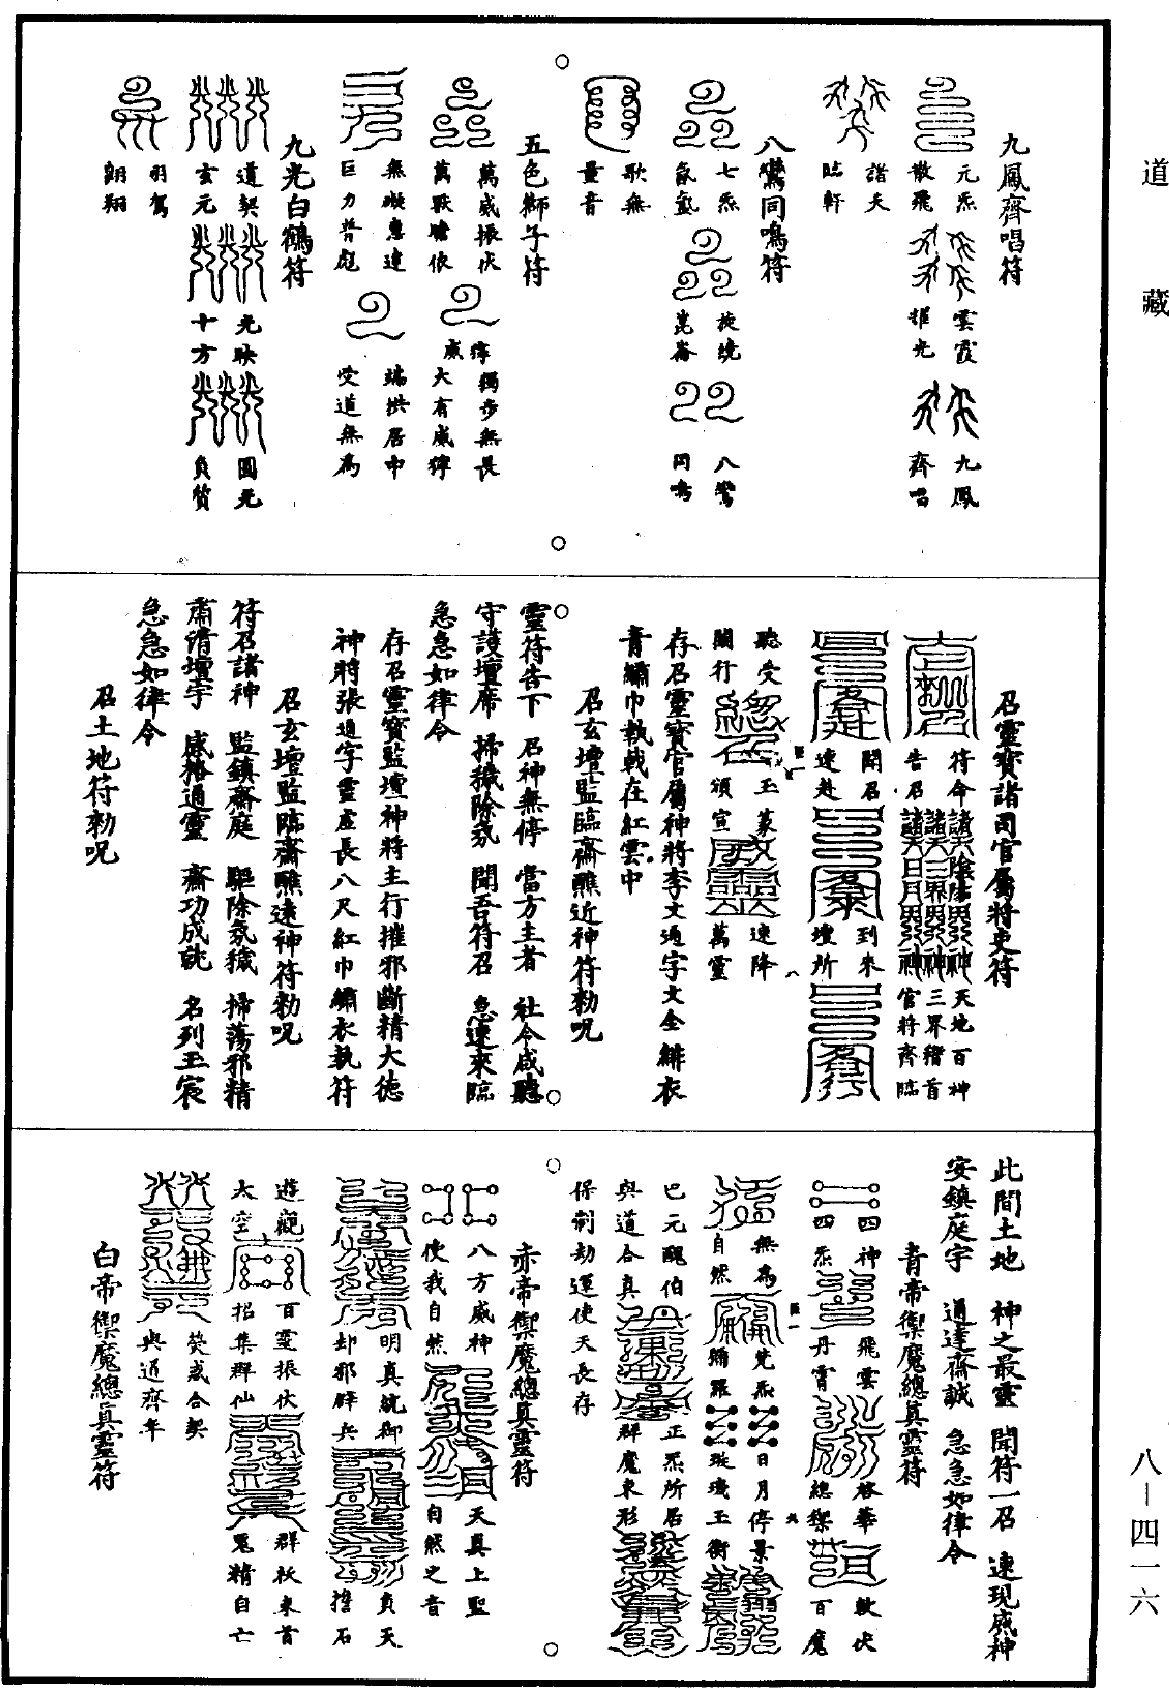 道藏
九鳳齊唱符
元炁
散飛
雲霞
耀光
九鳳
齊唱
諸天
臨軒
八鸞同鳴符
七炁
氤氳
旋繞
崑崙
八鸞
同鳴
歌無
量音
五色獅子符
萬威振伏
萬獸贍依
獨步無畏
大有威獰
無礙惠連
巨力普彪
端拱居中
受道無為
九光白鶴符
道契
玄元
光映
十方
圓光
負質
羽駕
翱翔
召靈寶諸司官屬將吏符
符命
告召
天地百神
三界稽首
官將齊臨
聞召
速赴
到來
壇所
聽受
關行
玉篆
頒宣
速降
萬靈
存召靈寶官屬神將李文通字文全緋衣
青繡巾執戟在紅雲中
召玄壇監臨齋醮近神符勑呪
靈符告下 召神無停 當方主者 社令咸聽
守護壇席 掃穢除氛 聞吾符召 急速來臨
急急如律令
存召靈寶監壇神將主行摧邪斷精大德
神將張通字靈虛長八尺紅巾繡衣執符
召玄壇監臨齋醮遠神符勑呪
符召諸神 監鎮齋庭 驅除氛穢 掃蕩邪精
肅清壇宇 感格通靈 齋功成就 名列玉宸
急急如律令
召土地符勑呪
此間土地 神之最靈 聞符一召 速現威神
安鎮庭宇 通達齋誠 急急如律令
青帝禦魔總真靈符
四神
四炁
飛雲
丹霄
啓華
總禦
軟伏
百魔
無為
自然
梵炁
彌羅
日月停景
璇璣玉衡
巴元醜伯
與道合真
正炁所居
群魔束形
保制劫運使天長存
赤帝禦魔總真靈符
八方威神
使我自然
天真上聖
自然之音
明真統御
却邪辟兵
負天
擔石
遊觀
太空
百靈振伏
招集群仙
群妖束首
鬼精自亡
熒惑合契
與道齊年
白帝禦魔總真靈符
八－四一六